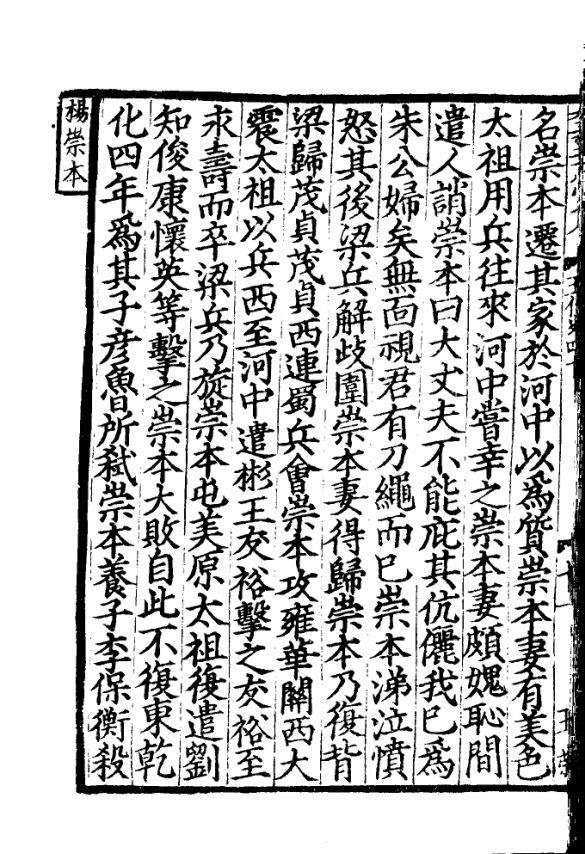 名崇本遷其家於河中以為質崇本妻有美色
太祖用兵往來河中嘗幸之崇本妻頗媿恥間
遣人誚崇本曰大丈夫不能庇其伉儷我已為
朱公婦矣無面視君有刀繩而已崇本涕泣憤
怒其後梁兵解歧圍崇本妻得歸崇本乃復背
梁歸茂貞茂貞西連蜀兵會崇本攻雍華關西大
震太祖以兵西至河中遣彬王友裕擊之友裕至
永壽而卒梁兵乃旋崇本屯美原太祖復遣劉
知俊康懷英等擊之崇本大敗自此不復東乾
化四年為其子彦魯所弑崇本養子李保衡殺
楊崇本